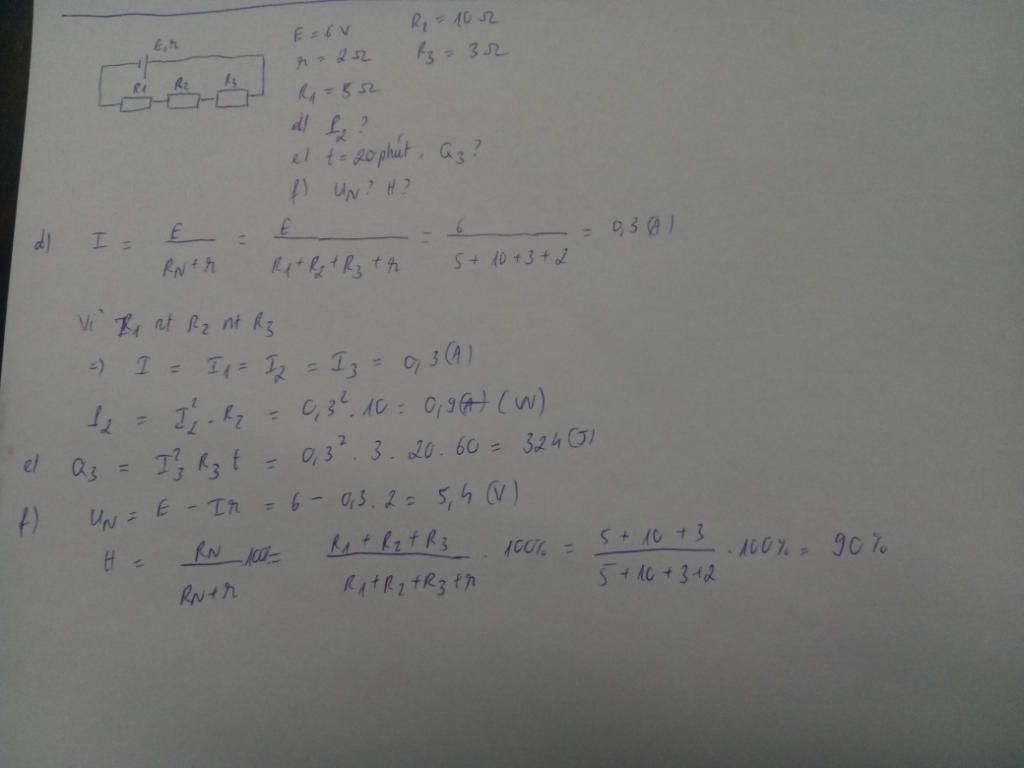 E, r
R1 R2 R3
E = 6 V R2 = 10 Ω
r = 2 Ω R3 = 3 Ω
R1 = 5 Ω
d) P2 ?
e) t = 20 phút. Q3 ?
f) UN ? H ?
d) I = E / (RN + r) = E / (R1 + R2 + R3 + r) = 6 / (5 + 10 + 3 + 2) = 0,3 (A)
Vì R1 nt R2 nt R3
=> I = I1 = I2 = I3 = 0,3 (A)
P2 = I2² . R2 = 0,3² . 10 = 0,9 (W)
e) Q3 = I3² R3 t = 0,3² . 3 . 20 . 60 = 324 (J)
f) UN = E - Ir = 6 - 0,3 . 2 = 5,4 (V)
H = RN / (RN + r) . 100% = (R1 + R2 + R3) / (R1 + R2 + R3 + r) . 100% = (5 + 10 + 3) / (5 + 10 + 3 + 2) . 100% = 90%